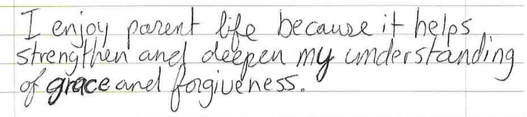 I enjoy parent life because it helps
strengthen and deepen my understanding
of grace and forgiveness.